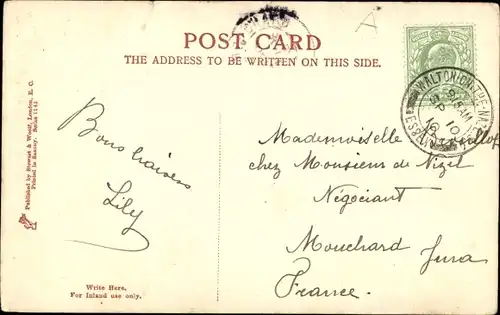 POST CARD
THE ADDRESS TO BE WRITTEN ON THIS SIDE.
A
WALTON-ON-THE-NAZE
9.15 AM
SP 10
Published by Stewart & Woolf, London, E. C.
Printed in Saxony. Series
Bons baisers
Lily
Mademoiselle
chez Monsieur de Nizel
Négociant
Mouchard Jura
France.
Write Here.
For Inland use only.